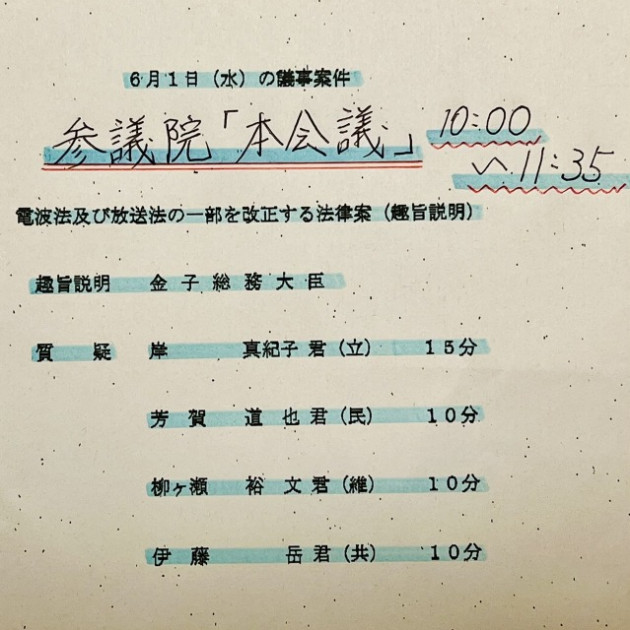 6月1日（水）の議事案件
参議院「本会議」 10:00
〜11:35
電波法及び放送法の一部を改正する法律案（趣旨説明）
趣旨説明 金子総務大臣
質疑 岸 真紀子君（立） 15分
芳賀 道也君（民） 10分
柳ヶ瀬 裕文君（維） 10分
伊藤 岳君（共） 10分